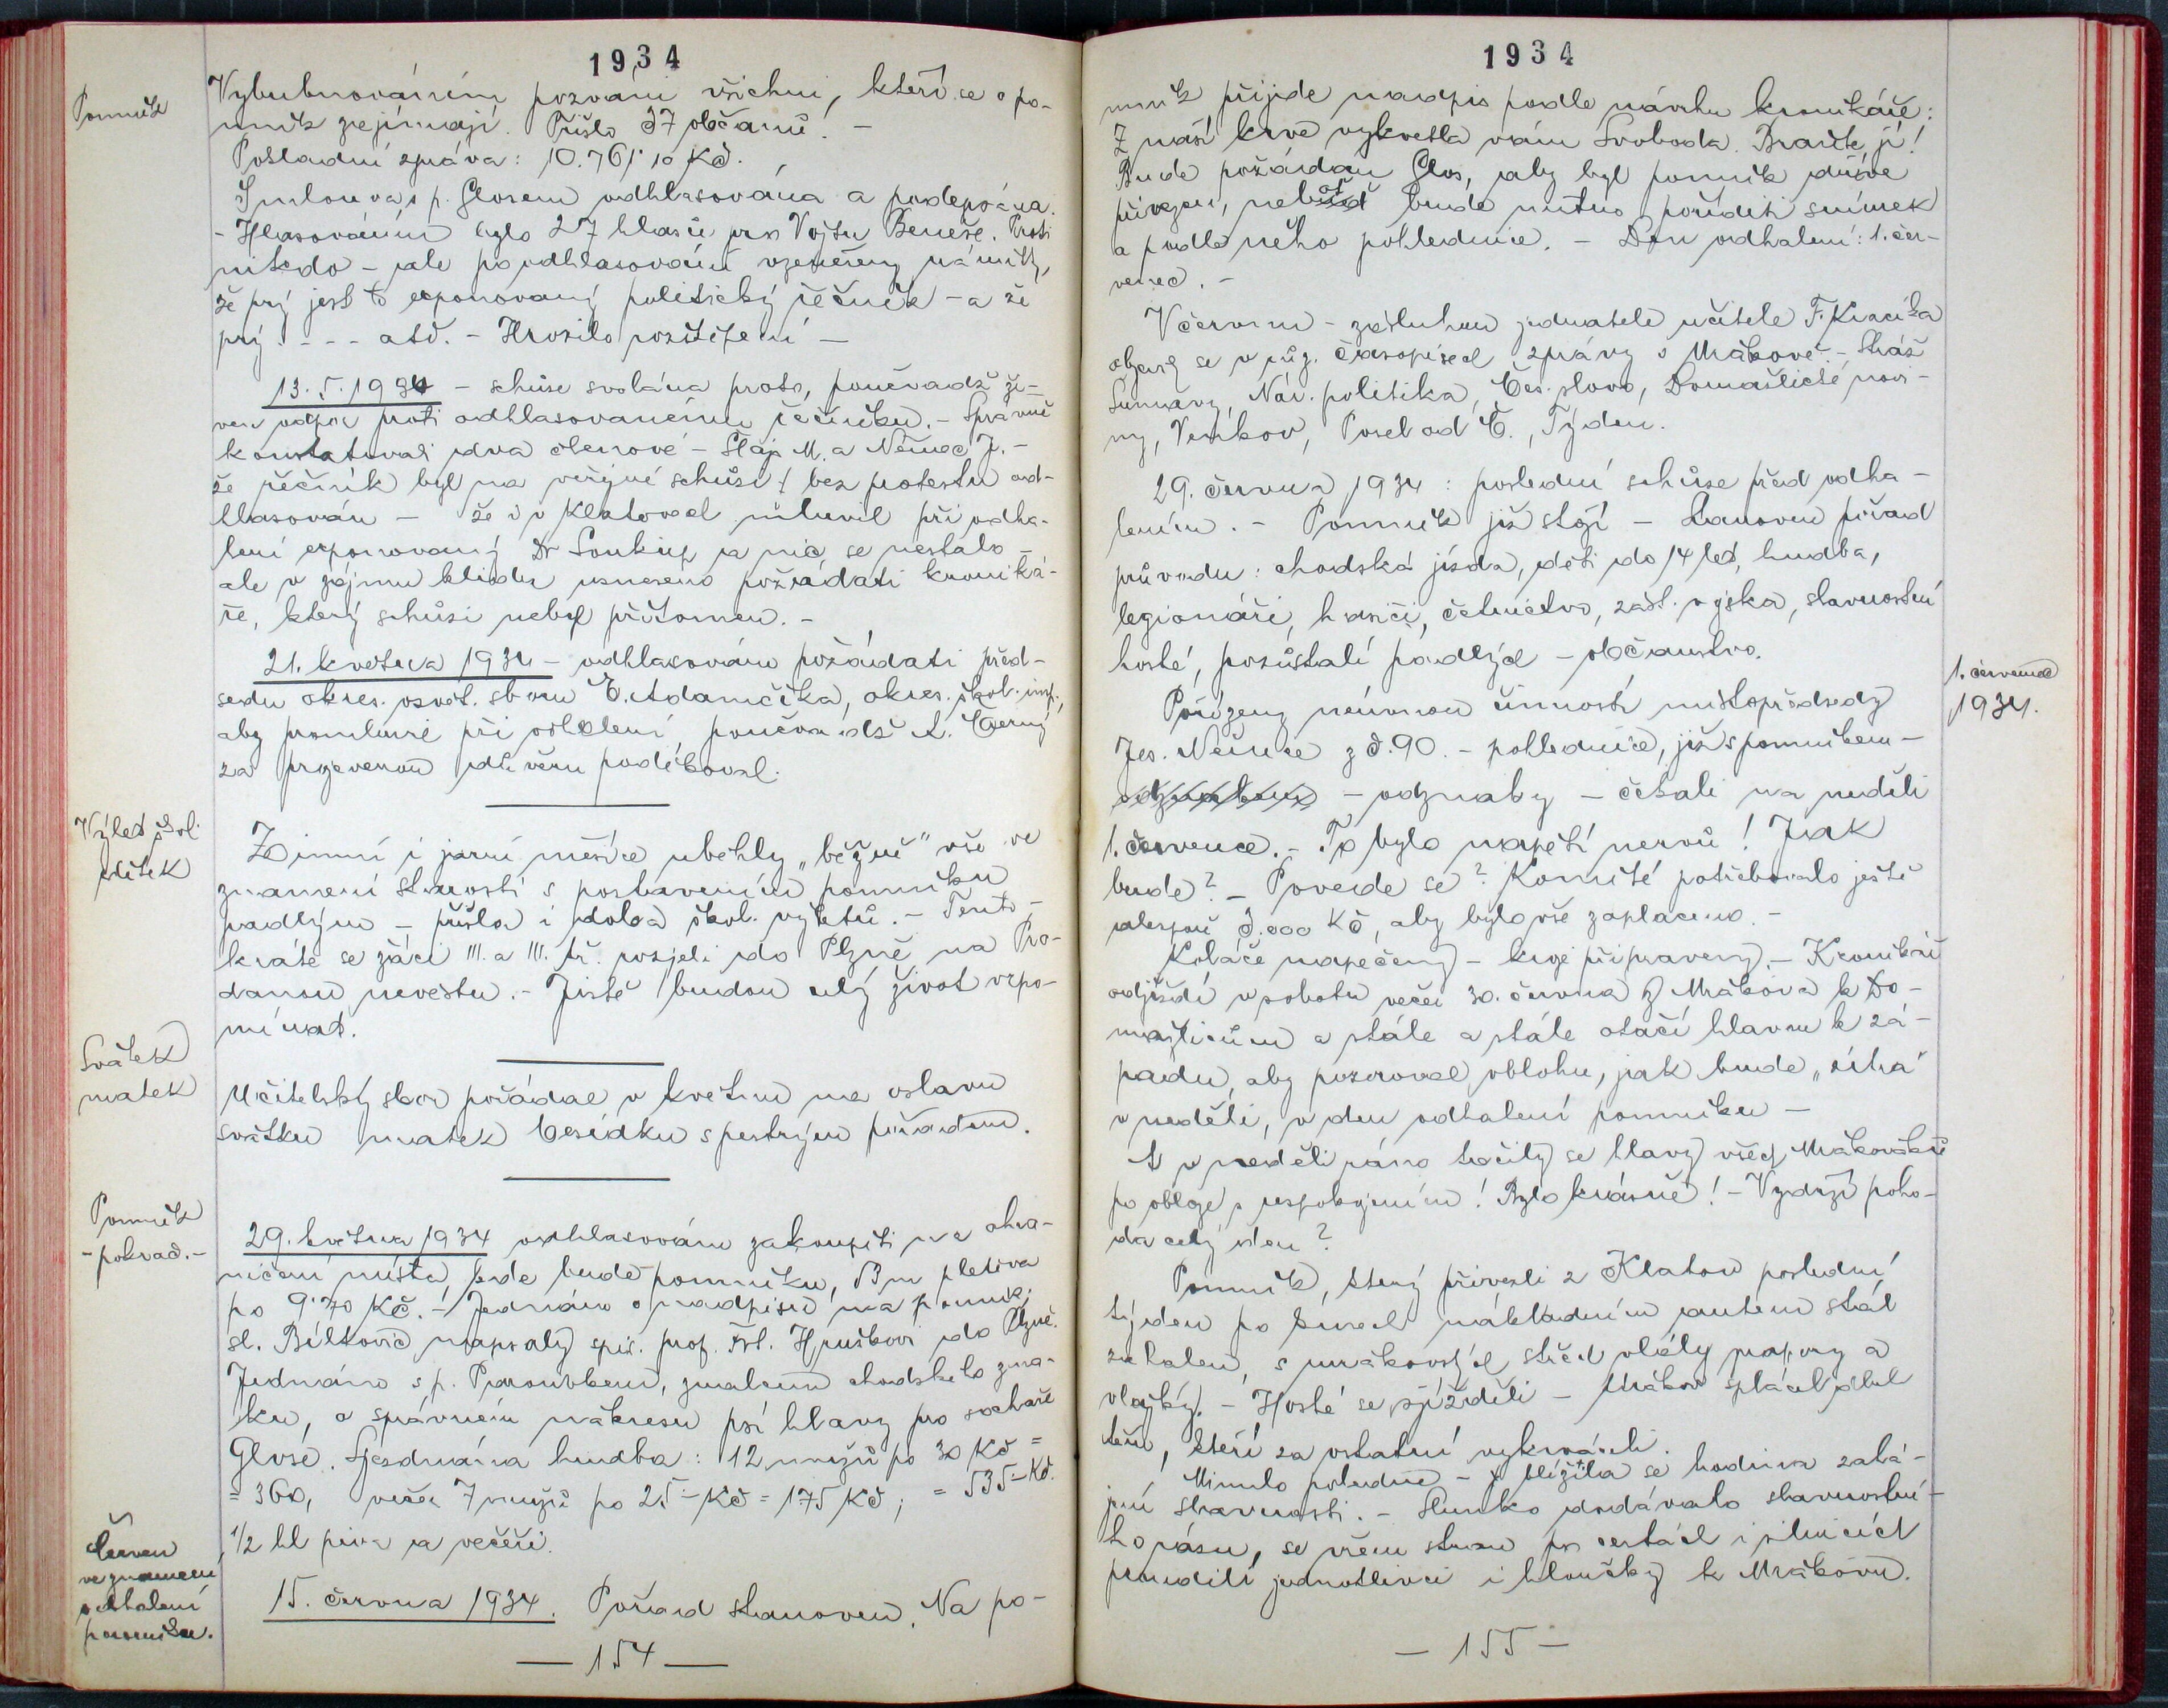 1934
Pomník
Vybubnováním pozváni všichni, kteří se o po-
mník zajímají. Přišlo 37 občanů. –
Pokladní zpráva: 10.761·10 Kč.
Smlouva s p. Glosem odhlasována a podepsána.
– Hlasováním bylo 27 hlasů pro Vojtu Beneše. Proti
nikdo – ale po odhlasování vzneseny námitky,
že prý jest to exponovaný politický řečník – a že
prý - - - atd. – Hrozilo rozštěpení –
13. 5. 1934 – schůze svolána proto, poněvadž ži-
ven odpor proti odhlasovanému řečníku. – Správně
konstatovali dva členové – Šlajs M. a Němec J. –
že řečník byl na veřejné schůzi bez protestu od-
hlasován – že i v Klatovech mluvil při odha-
lení exponovaný Dr Soukup a nic se nestalo –
ale v zájmu klidu usneseno požádati kroniká-
ře, který schůzi nebyl přítomen. –
21. května 1934 – odhlasováno požádati před-
sedu okres. osvět. sboru E. Adamčíka, okres. škol. insp.,
aby promluvil při odhalení poněvadž A. Černý
za projevenou důvěru poděkoval.
Výlet škol.
dítek
Zimní i jarní měsíce uběhly „běžně" vše ve
znamení starostí s postavením pomníku
padlým – přišla i doba škol. výletů. – Tento-
kráte se žáci III. a III. tř. rozjeli do Plzně na Pro-
danou nevěstu. – Jistě budou celý život vzpo-
mínat.
Svátek
matek
Učitelský sbor pořádal v květnu na oslavu
svátku matek besídku s pestrým pořadem.
Pomník
– pokrač. –
29. května 1934 odhlasováno zakoupiti na ohra-
ničení místa, kde bude pomníku, 53 m pletiva
po 9·70 Kč. – Jednáno o nadpisu na pomník.
sl. Bílkovič napsaly spis. prof. Frt. Hruškovi do Plzně.
Jednáno s p. , znalcem chodského zna-
ku, o správném nákresu psí hlavy pro sochaře
Glose. Sjednána hudba: 12 mužů po 30 Kč =
= 360, večer 7 mužů po 25 – Kč = 175 Kč; = 535 – Kč.
1/2 hl piva a večeři.
Červen
ve znamení
odhalení
pomníku.
15. června 1934. Pořad stanoven. Na po-
– 154 –
1934
mník přijde nadpis podle návrhu kronikáře:
Z naší krve vykvetla vám Svoboda. Braňte ji!
Bude požádán Glos, aby byl pomník dříve
přivezen, neboť bude nutno poříditi snímek
a podle něho pohlednice. – Den odhalení: 1. čer-
venec. –
V červnu – zásluhou jednatele učitele F. Kračíka
objevily se v růz. časopisech zprávy o Mrákově. – Stráž
Šumavy, Nár. politika, Čes. slovo, Domažlické novi-
ny, Venkov, Posel od Č., Týden.
29. června 1934: poslední schůze před odha-
lením. – Pomník již stojí – Stanoven pořad
průvodu: chodská jízda, děti do 14 let, hudba,
legionáři, hasiči, četnictvo, zást. vojska, slavnostní
hosté, pozůstalí padlých – občanstvo.
1. červenec
1934.
Pořízeny neúnavnou činností místopředsedy
Jos. Němce z č. 90. – pohlednice, již s pomníkem –
– odznaky – čekali na neděli
1. července. – To bylo napětí nervů! Jak
bude? – Povede se? Komité potřebovalo ještě
alespoň 3.000 Kč, aby bylo vše zaplaceno. –
Koláče napečeny – kroje připraveny. – Kronikář
odjíždí v sobotu večer 30. června z Mrákova k Do-
mažlicům a stále a stále otáčí hlavu k zá-
padu, aby pozoroval oblohu, jak bude „zítra"
v neděli, v den odhalení pomníku –
A v neděli ráno točily se hlavy všech Mrákovských
po obloze s uspokojením! Bylo krásně! – Vydrží poho-
da celý den?
Pomník, který přivezli z Klatov poslední
týden po kusech nákladním autem stál
zahalen, s mrákovských střech vlály prapory a
vlajky. – Hosté se sjížděli – Mrákov splácel dluh
těm, kteří za ostatní vykrváceli.
Minulo poledne – přiblížila se hodina zahá-
jení slavnosti. – Slunko dodávalo slavnostní-
ho rázu, se všech stran po cestách i silnicích
proudili jednotlivci i hloučky k Mrákovu.
– 155 –